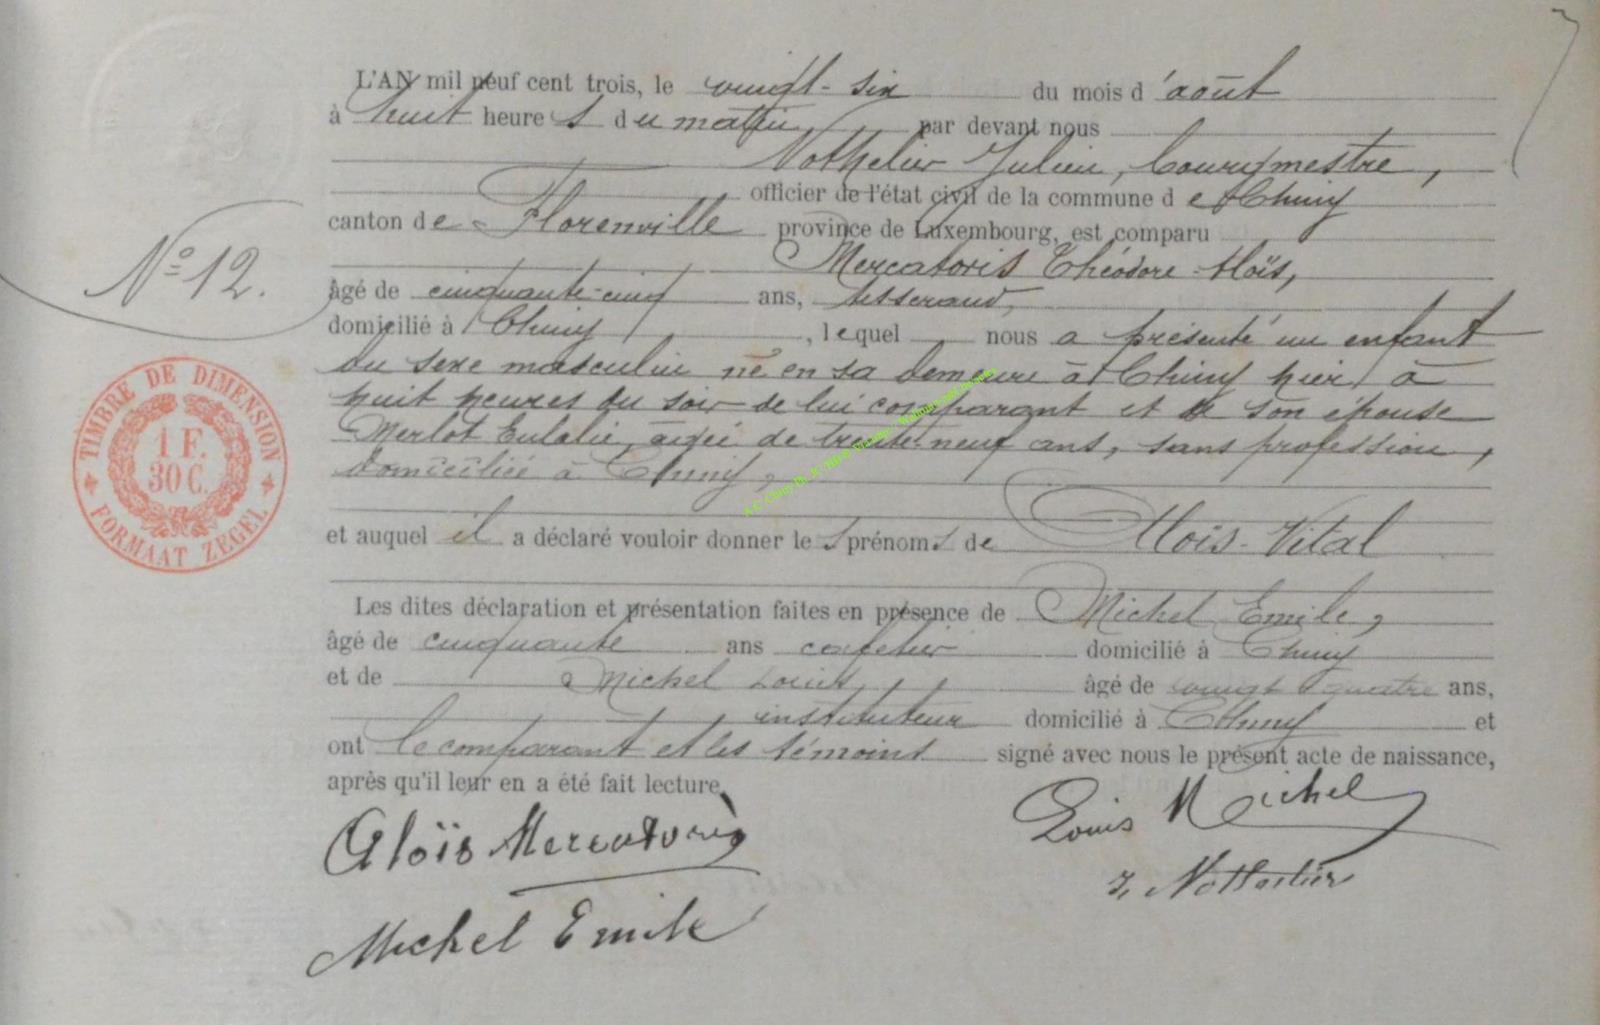 L'AN mil neuf cent trois, le vingt-six du mois d'août
à huit heures du matin par devant nous
Nothelier Julien, Bourgmestre,
officier de l'état civil de la commune de Chiny
canton de Florenville province de Luxembourg, est comparu
Mercatoris Théodore-Aloïs,
âgé de cinquante-cinq ans, tisserand,
domicilié à Chiny, lequel nous a présenté un enfant
du sexe masculin né en sa demeure à Chiny hier à
huit heures du soir de lui comparant et de son épouse
Merlot Eulalie, âgée de trente-neuf ans, sans profession,
domiciliée à Chiny,
et auquel il a déclaré vouloir donner les prénoms de Aloïs-Vital
Les dites déclaration et présentation faites en présence de Michel Emile,
âgé de cinquante ans cafetier domicilié à Chiny
et de Michel Louis, âgé de vingt quatre ans,
instituteur domicilié à Chiny et
ont le comparant et les témoins signé avec nous le présent acte de naissance,
après qu'il leur en a été fait lecture.
N° 12.
TIMBRE DE DIMENSION
1 F.
30 C.
FORMAAT ZEGEL
Aloïs Mercatoris
Louis Michel
J. Nothelier
Michel Emile